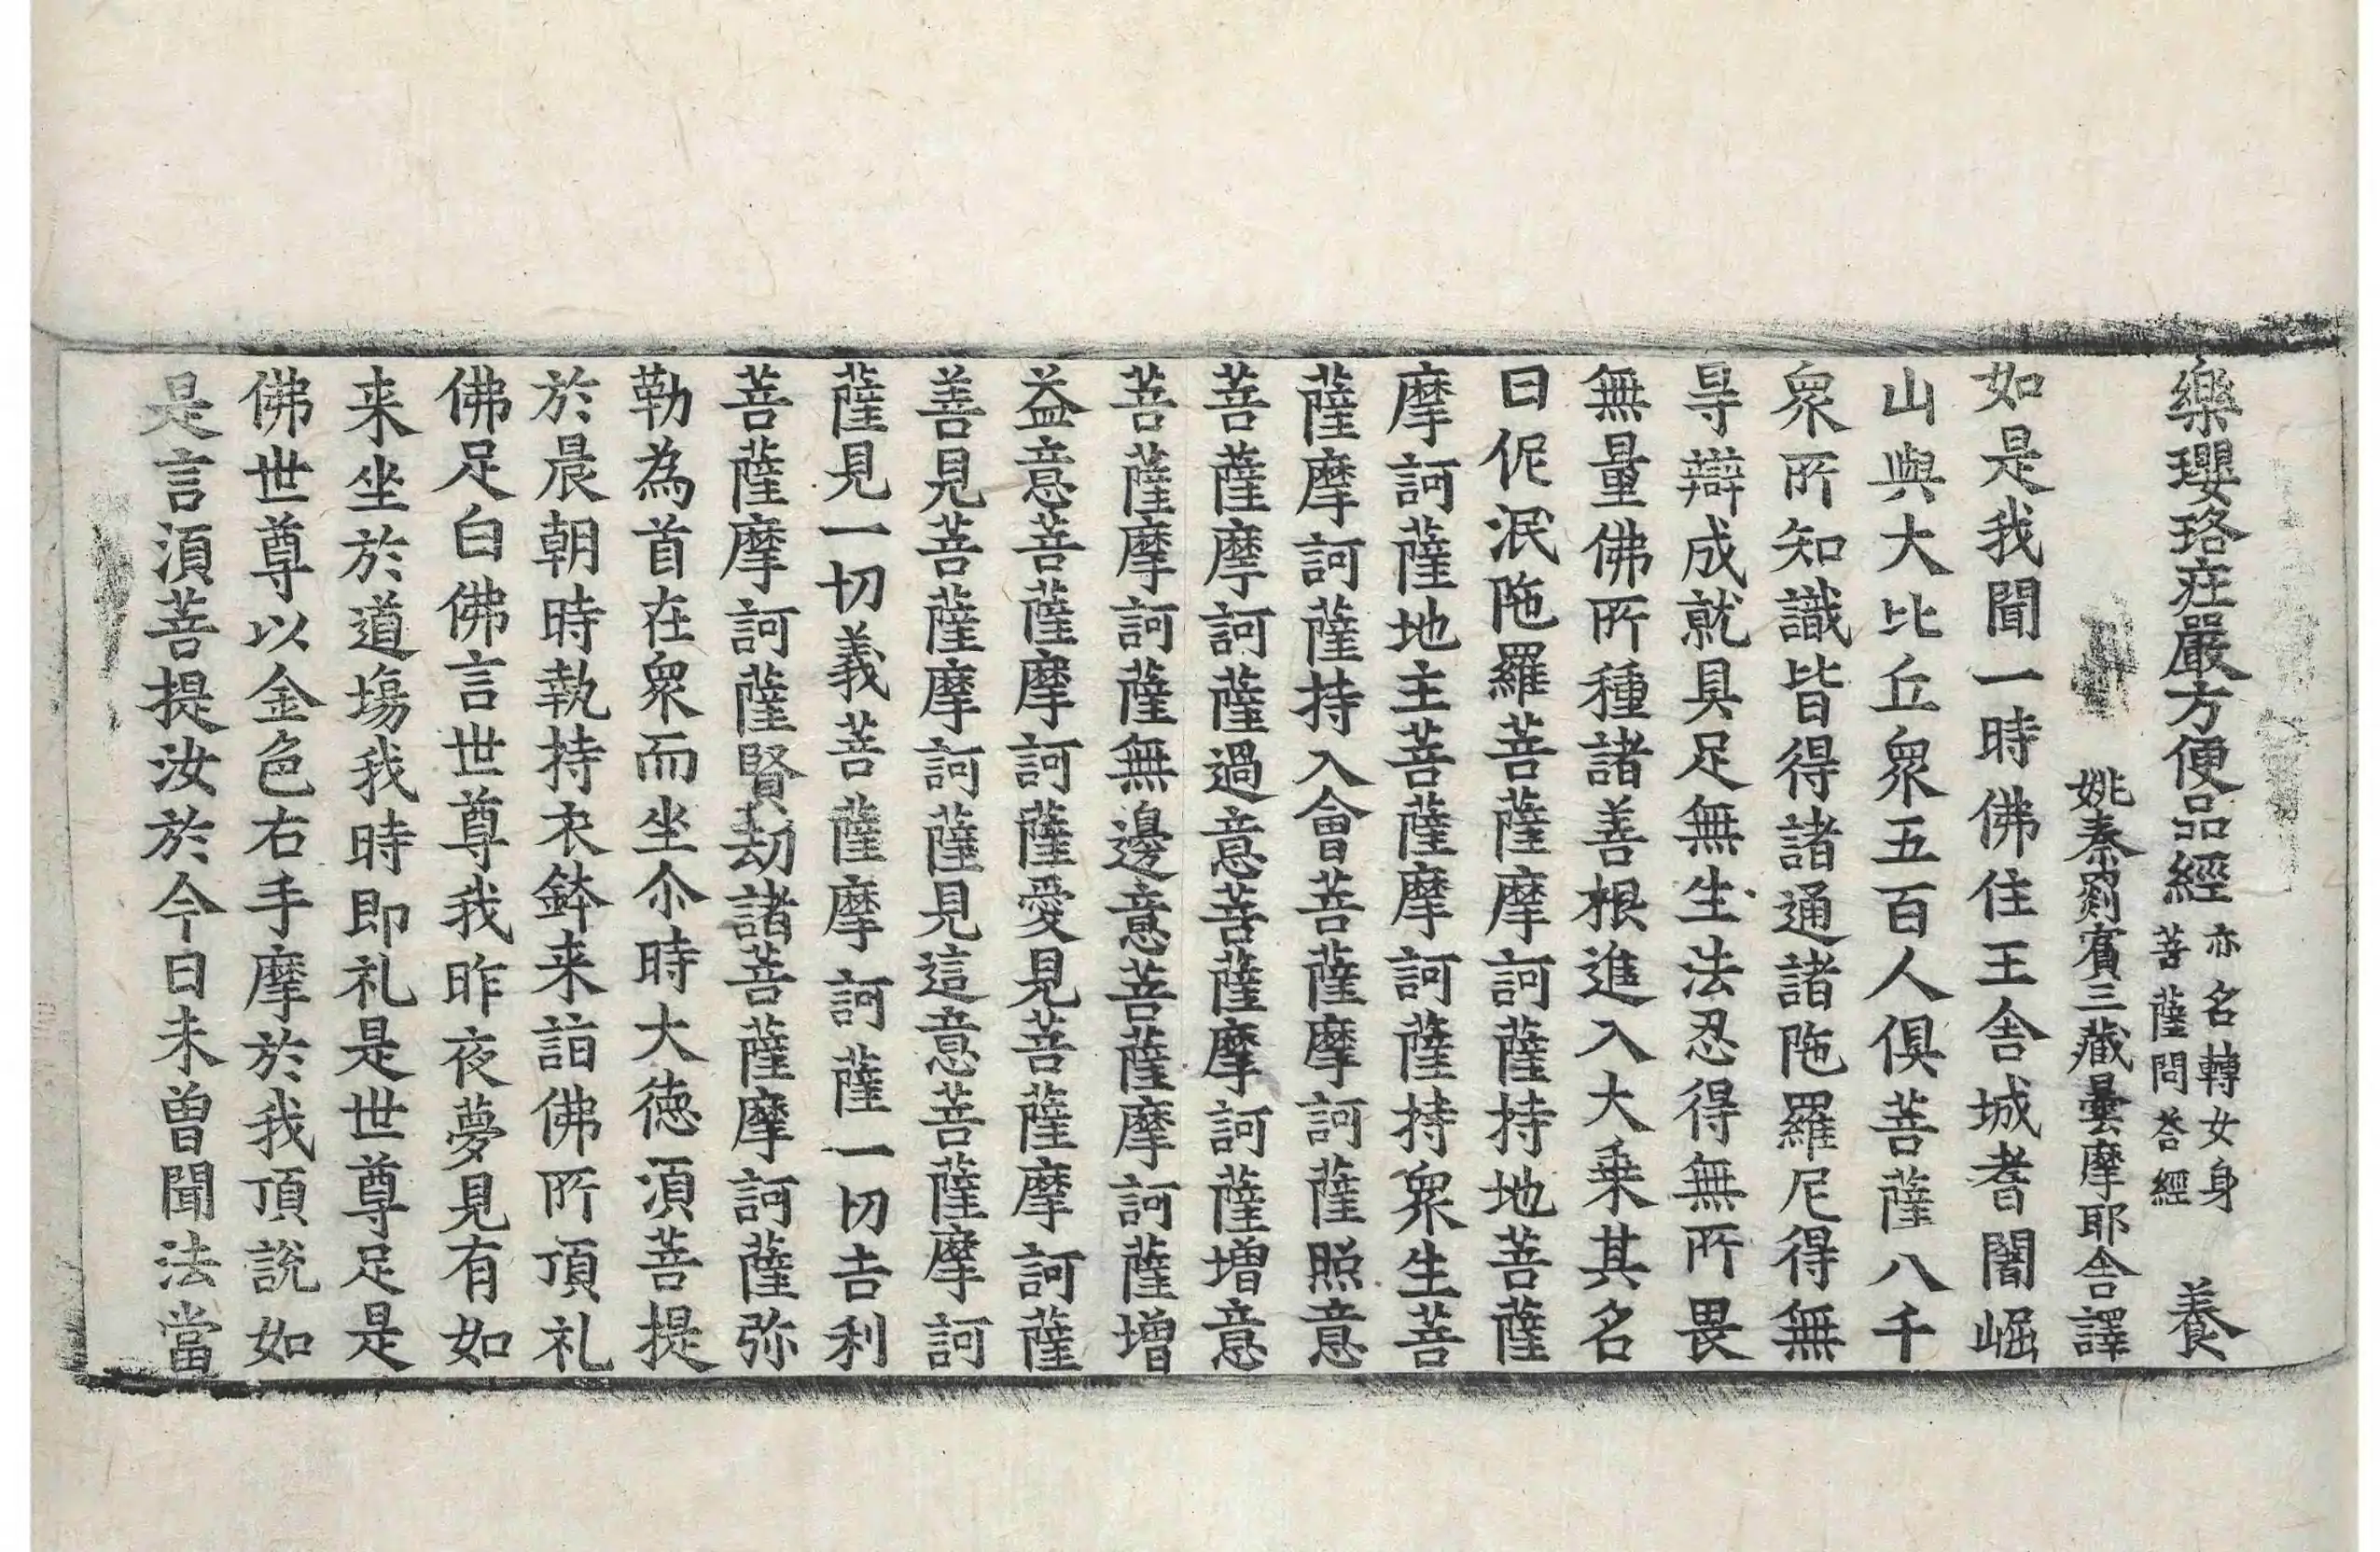 樂瓔珞莊嚴方便品經 亦名轉女身菩薩問荅經 養
姚秦罽賓三藏曇摩耶舍譯
如是我聞一時佛住王舍城耆闍崛
山與大比丘衆五百人俱菩薩八千
衆所知識皆得諸通諸陁羅尼得無
㝵辯成就具足無生法忍得無所畏
無量佛所種諸善根進入大乗其名
曰伲泯陁羅菩薩摩訶薩持地菩薩
摩訶薩地主菩薩摩訶薩持衆生菩
薩摩訶薩持入會菩薩摩訶薩照意
菩薩摩訶薩過意菩薩摩訶薩增意
菩薩摩訶薩無邊意菩薩摩訶薩增
益意菩薩摩訶薩愛見菩薩摩訶薩
善見菩薩摩訶薩見這意菩薩摩訶
薩見一切義菩薩摩訶薩一切吉利
菩薩摩訶薩賢劫諸菩薩摩訶薩弥
勒為首在衆而坐尒時大德湏菩提
於晨朝時執持衣鉢来詣佛所頂礼
佛足白佛言世尊我昨夜夢見有如
来坐於道塲我時即礼是世尊足是
佛世尊以金色右手摩於我頂說如
是言湏菩提汝於今日未曽聞法當